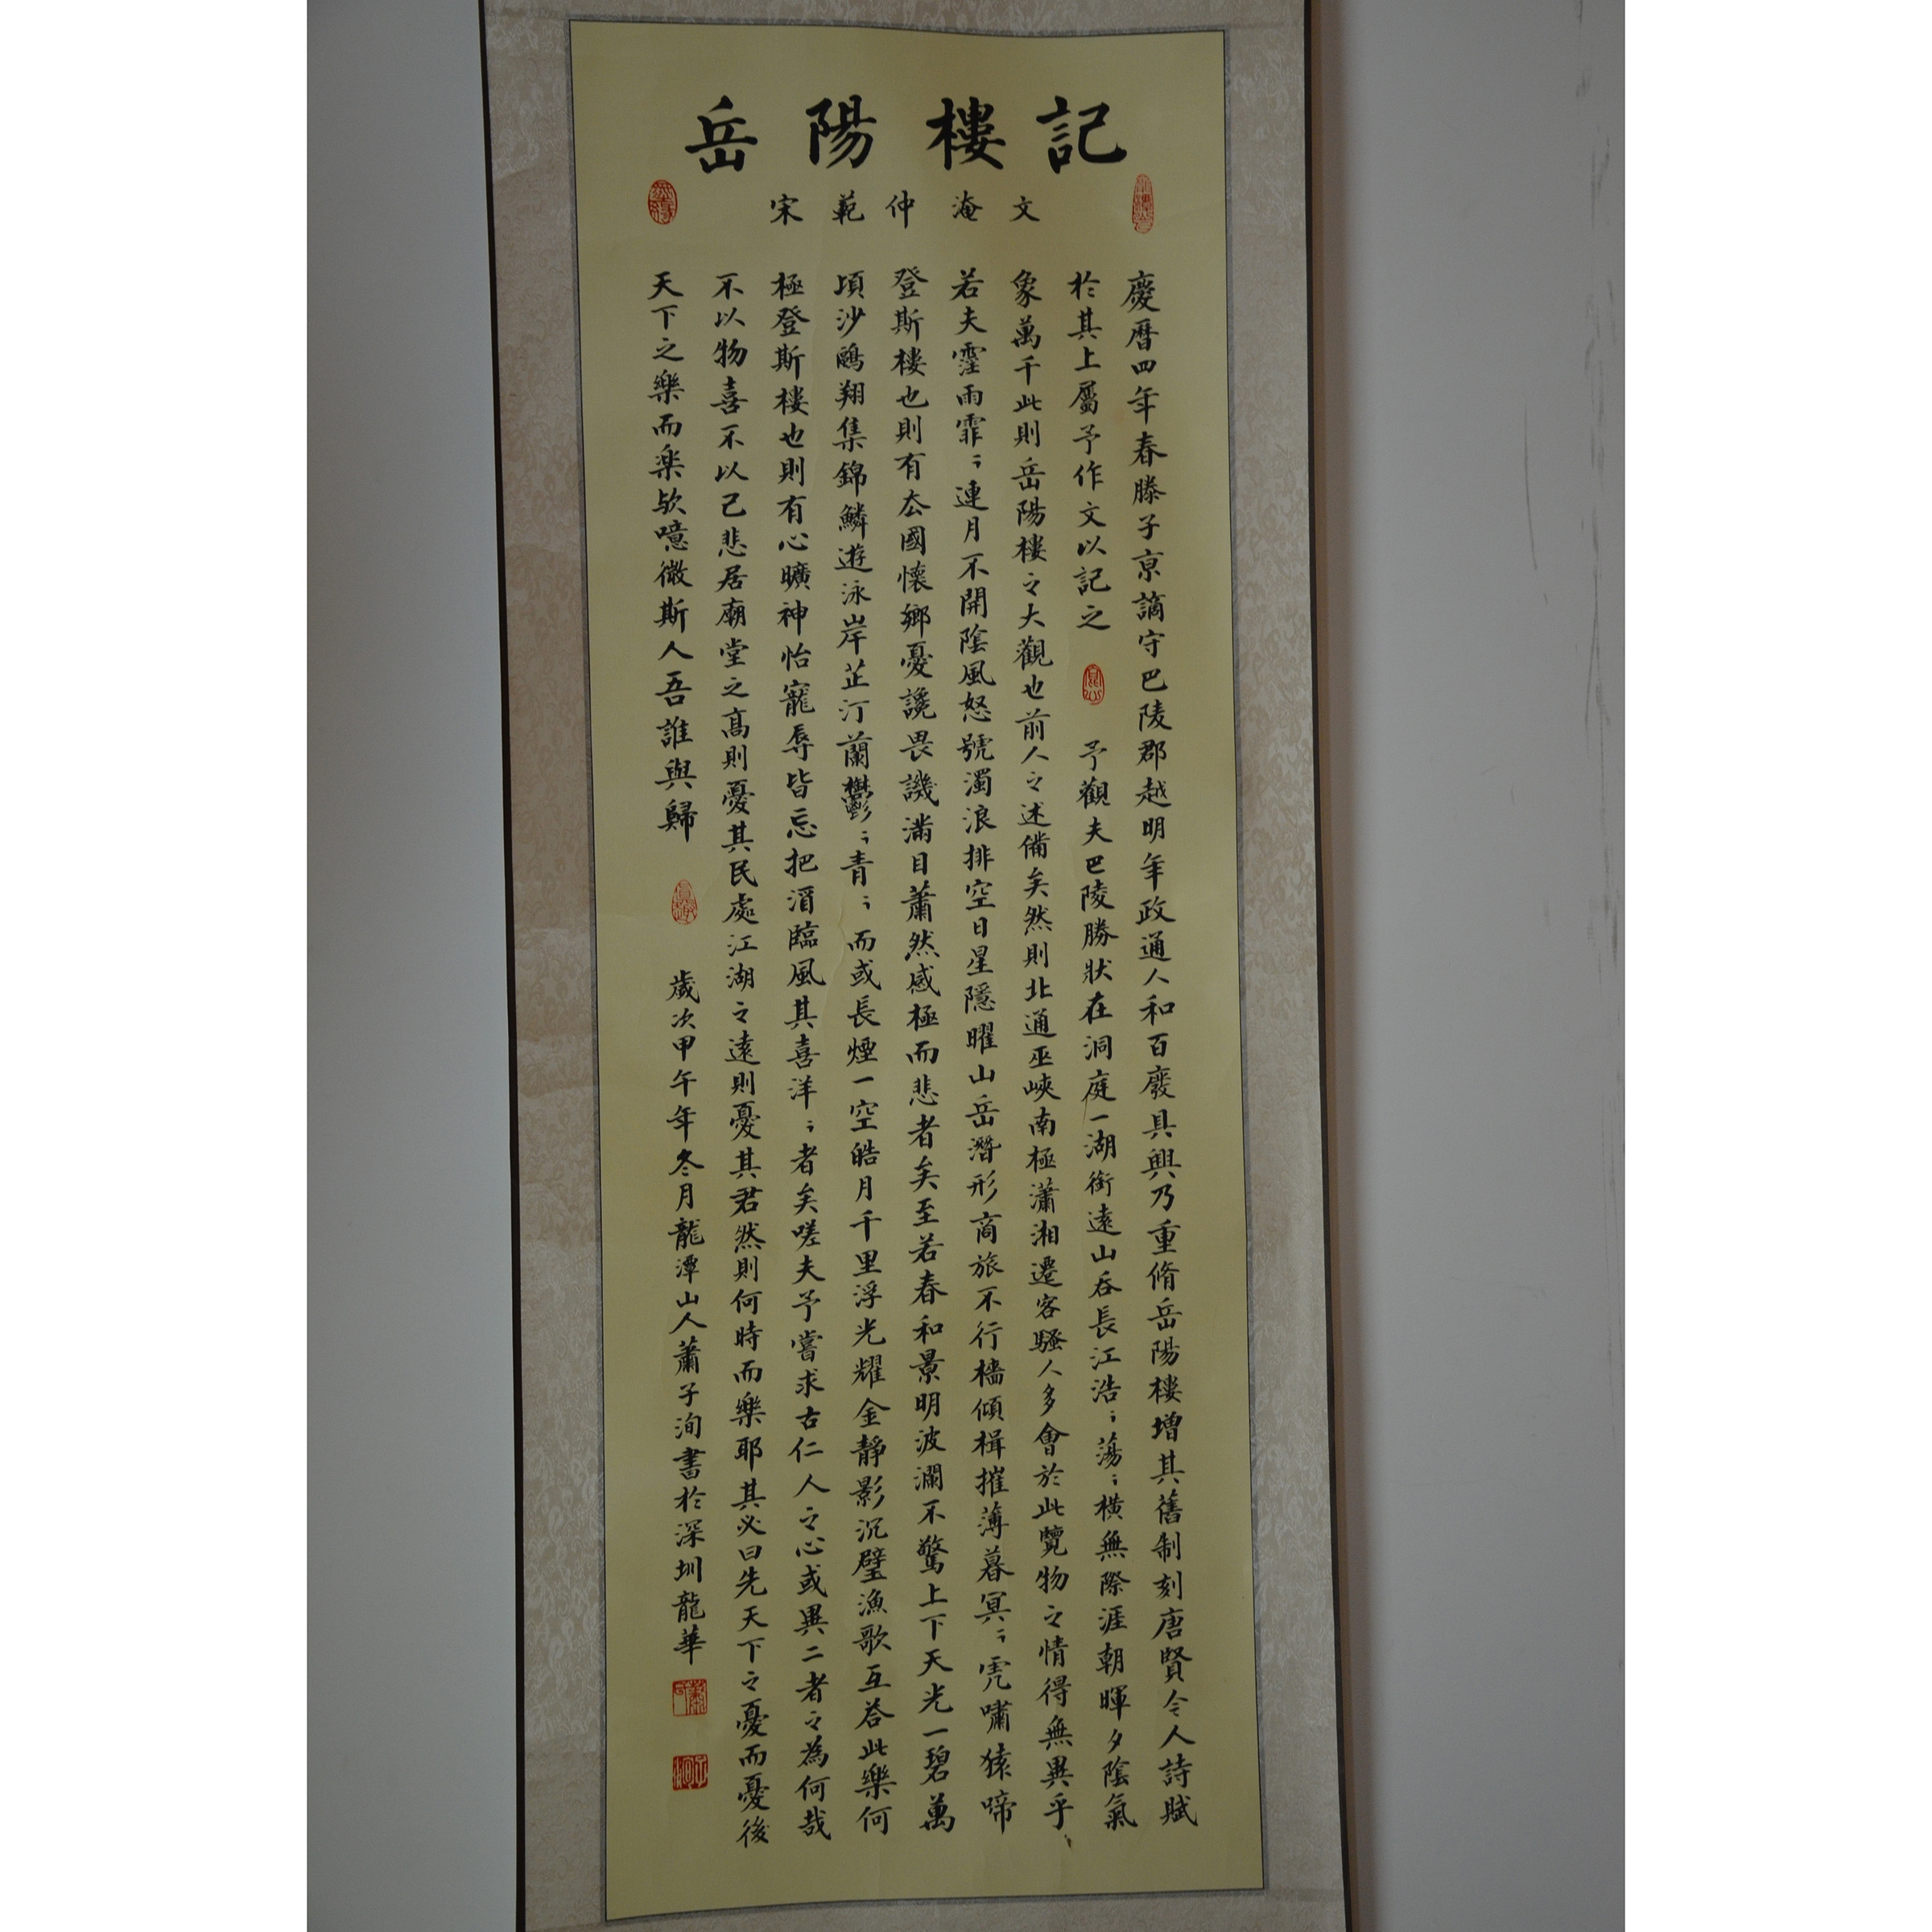 岳陽樓記
宋範仲淹文
慶曆四年春滕子京謫守巴陵郡越明年政通人和百廢具興乃重脩岳陽樓增其舊制刻唐賢今人詩賦
於其上屬予作文以記之 予觀夫巴陵勝狀在洞庭一湖銜遠山吞長江浩〻蕩〻橫無際涯朝暉夕陰氣
象萬千此則岳陽樓之大觀也前人之述備矣然則北通巫峽南極瀟湘遷客騷人多會於此覽物之情得無異乎
若夫霪雨霏〻連月不開陰風怒號濁浪排空日星隱曜山岳潛形商旅不行檣傾楫摧薄暮冥〻虎嘯猿啼
登斯樓也則有去國懷鄉憂讒畏譏滿目蕭然感極而悲者矣至若春和景明波瀾不驚上下天光一碧萬
頃沙鷗翔集錦鱗遊泳岸芷汀蘭鬱〻青〻而或長煙一空皓月千里浮光耀金靜影沉璧漁歌互答此樂何
極登斯樓也則有心曠神怡寵辱皆忘把酒臨風其喜洋〻者矣嗟夫予嘗求古仁人之心或異二者之為何哉
不以物喜不以己悲居廟堂之高則憂其民處江湖之遠則憂其君然則何時而樂耶其必曰先天下之憂而憂後
天下之樂而樂歟噫微斯人吾誰與歸
歲次甲午年冬月龍潭山人蕭子洵書於深圳龍華